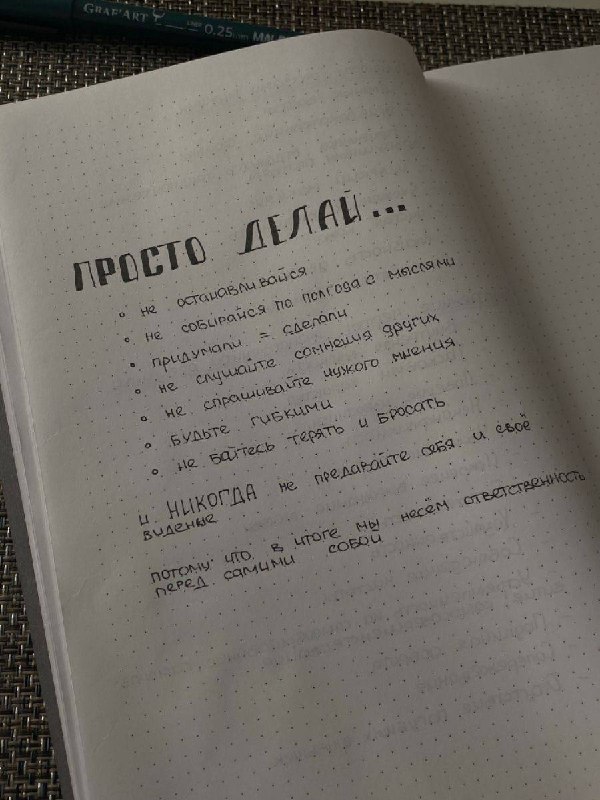 GRAF'ART
0.25
ПРОСТО ДЕЛАЙ...
не останавливайся
не собирайся по полгода с мыслями
придумали = сделали
не слушайте сомнения других
не спрашивайте чужого мнения
будьте гибкими
не бойтесь терять и бросать
и НИКОГДА не предавайте себя и своё
виденье
потому что в итоге мы несём ответственность
перед самими собой